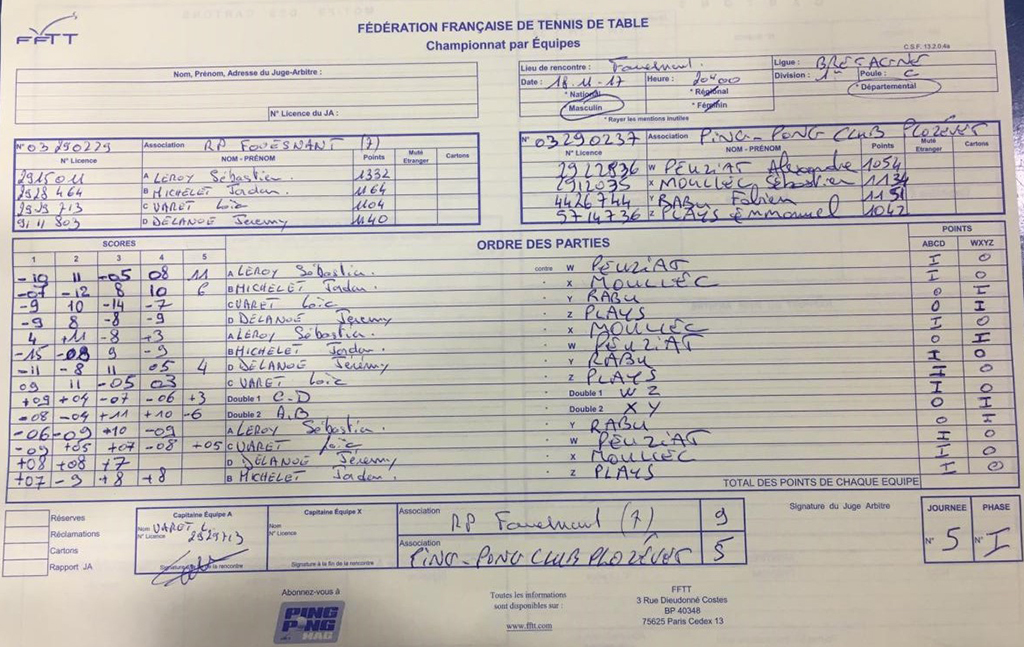 FFTT
FÉDÉRATION FRANÇAISE DE TENNIS DE TABLE
Championnat par Équipes
C.S.F. 13.2.0.4a
Nom, Prénom, Adresse du Juge-Arbitre :
N° Licence du JA :
Lieu de rencontre : Fouesnant.
Ligue : BRETAGNE
Date : 18.11.17 Heure : 20h00 Division : 1 Poule : C
* National * Régional * Départemental
Masculin * Féminin
* Rayer les mentions inutiles
N° 03 290229 Association RP FOUESNANT (7)
N° Licence NOM - PRÉNOM Points Muté Etranger Cartons
2915011 A LEROY Sébastien. 1332
2928 464 B MICHELET Jordan. 1164
2929 713 C VARET Loïc 1104
91 11 803 D DELANOE Jérémy 1140
N° 03290237 Association PING-PONG CLUB PLOZÉVET
N° Licence NOM - PRÉNOM Points Muté Etranger Cartons
2922836 W PEUZIAT Alexandre 1054
2912035 X MOULLEC Sébastien 1134
4426744 Y RABU Fabien 1151
5714736 Z PLAYS Emmanuel 1042
SCORES ORDRE DES PARTIES POINTS
1 2 3 4 5 ABCD WXYZ
-10 11 -05 08 11 A LEROY Sébastien. contre W PEUZIAT I 0
-07 -12 8 10 6 B MICHELET Jordan. - X MOULLEC I 0
-9 10 -14 -7 C VARET Loïc - Y RABU 0 I
-9 8 -8 -9 D DELANOE Jeremy - Z PLAYS 0 I
4 +11 -8 +3 A LEROY Sébastien. - X MOULLEC I 0
-15 -08 9 -9 B MICHELET Jordan. - W PEUZIAT 0 I
-11 -8 11 05 4 D DELANOE Jérémy - Y RABU I 0
09 11 -05 03 C VARET Loïc - Z PLAYS I 0
+09 +04 -07 -06 +3 Double 1 C-D - Double 1 W Z I 0
-08 -04 +11 +10 -6 Double 2 A.B - Double 2 X Y 0 I
-06 -09 +10 -09 A LEROY Sébastien. - Y RABU 0 I
-09 +05 +07 -08 +05 C VARET Loïc - W PEUZIAT I 0
+08 +08 +7 D DELANOE Jérémy - X MOULLEC I 0
+07 -9 +8 +8 B MICHELET Jordan. - Z PLAYS I 0
TOTAL DES POINTS DE CHAQUE EQUIPE
Réserves
Réclamations
Cartons
Rapport JA
Capitaine Équipe A
Nom VARET L.
N° Licence 2929713
Signature à la fin de la rencontre
Capitaine Équipe X
Nom
N° Licence
Signature à la fin de la rencontre
Association RP Fouesnant (7) 9
Association PING-PONG CLUB PLOZÉVET 5
Signature du Juge Arbitre
JOURNEE PHASE
N° 5 N° I
Abonnez-vous à
PING PONG MAG
Toutes les informations
sont disponibles sur :
www.fftt.com
FFTT
3 Rue Dieudonné Costes
BP 40348
75625 Paris Cedex 13